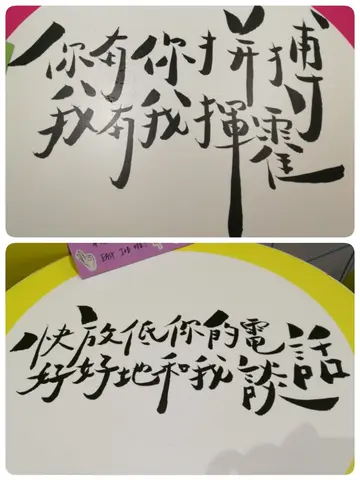 你有你拼搏
我有我揮霍
EASY JOB
快放低你的電話
好好地和我談